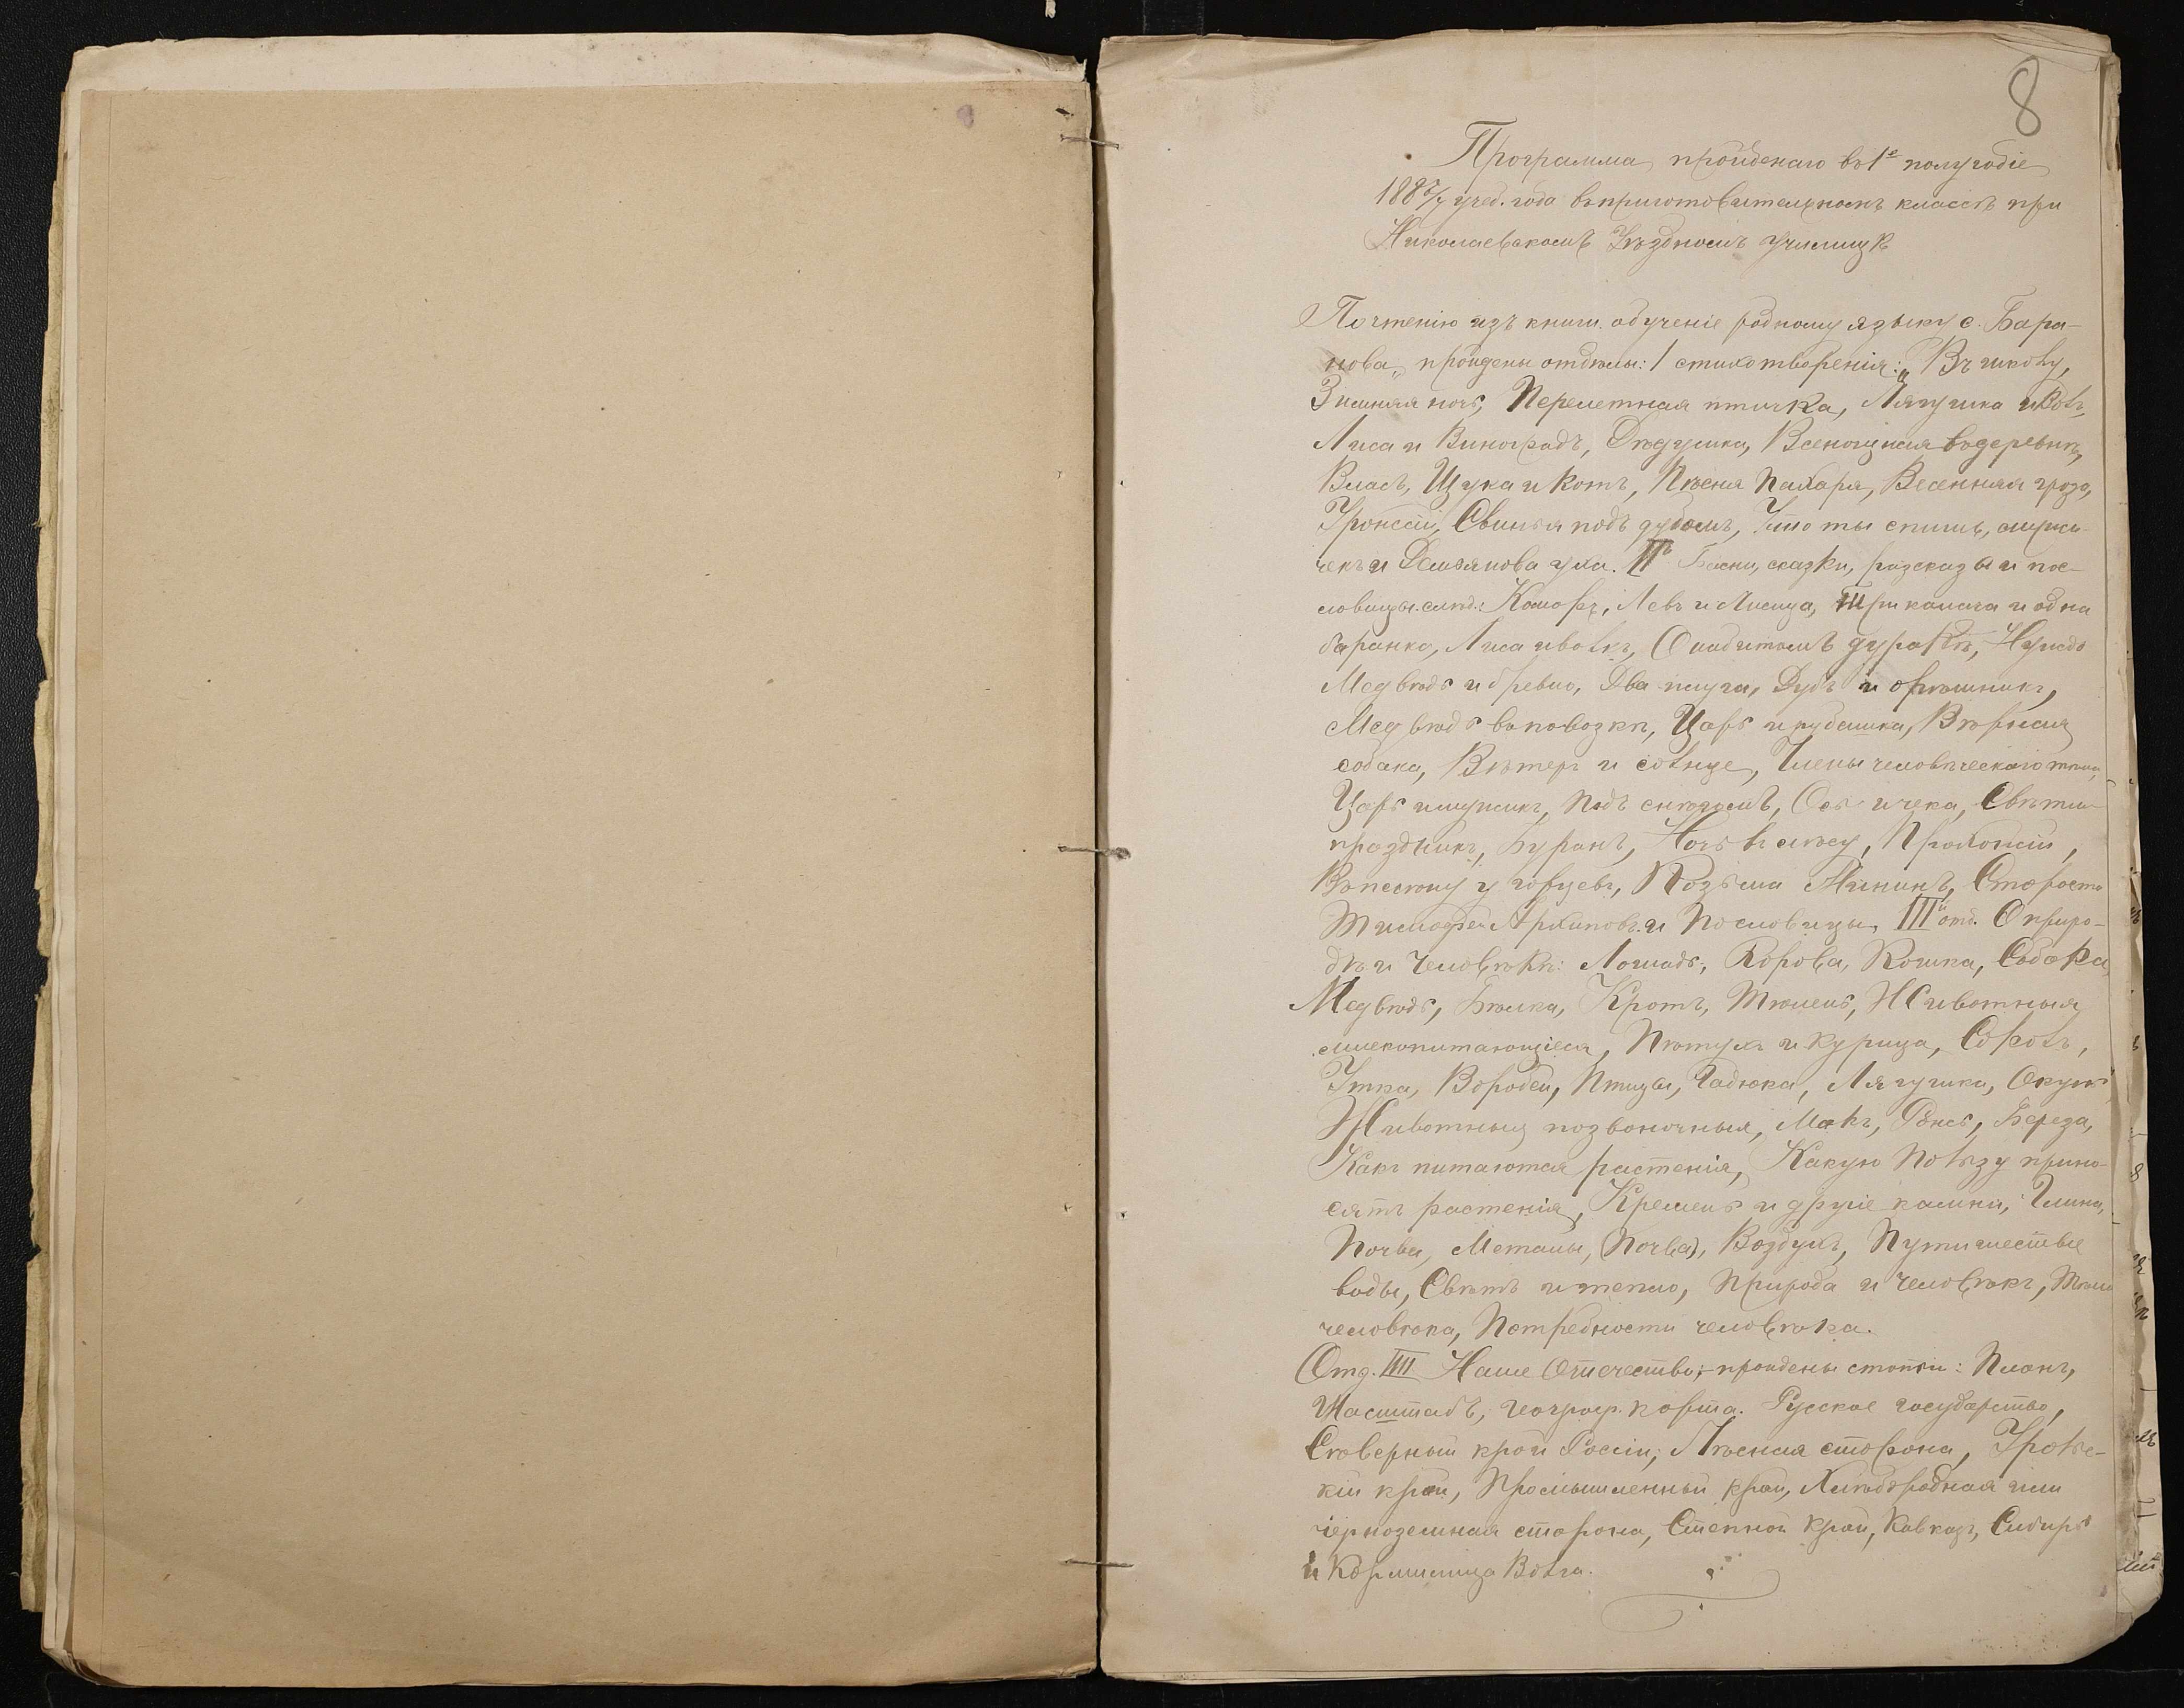 8
Программа пройденаго въ 1е полугодіе
188 6/7 учеб. года въ приготовительномъ классѣ при
Николаевскомъ Уѣздномъ училищѣ
По чтенію изъ книги обученіе родному языку с. Бара-
нова, пройдены отдѣлы: I стихотворенія: „Въ школу,
Зимняя ночь, Перелетная птичка, Лягушка и Волъ,
Лиса и Виноградъ, Дѣдушка, Всенощная въ деревнѣ,
Власъ, Щука и Котъ, Пѣсня Пахаря, Весенняя гроза,
Урожай, Свинья подъ дубомъ, Что ты спишь, мужи-
чекъ и Демьянова уха. IIй Басни, сказки, разсказы и пос-
ловицы. слѣд.: Комаръ, Левъ и Лисица, Три калача и одна
баранка, Лиса и волкъ, О набитомъ дуракѣ, Нужда
Медвѣдь и бревно, Два плуга, Дубъ и орѣшникъ,
Медвѣдь въ повозкѣ, Царь и рубашка, Вѣрная
собака, Вѣтеръ и солнце, Члены человѣческаго тѣла,
Царь и мужикъ, Подъ снѣгомъ, Ось и чека, Свѣтлый
праздникъ, Буранъ, Ночь въ лѣсу, Прохожій,
Въ плѣну у горцевъ, Козьма Мининъ, Староста
Тимофей Архиповъ и Пословицы, IIIй отд. О приро-
дѣ и Человѣкѣ: Лошадь, Корова, Кошка, Собака,
Медвѣдь, Бѣлка, Кротъ, Тюлень, Животныя
млекопитающіяся, Пѣтухъ и курица, Соколъ,
Утка, Воробей, Птицы, Гадюка, Лягушка, Окунь
Животныя позвоночныя, Макъ, Рожь, Береза,
Какъ питаются растенія, Какую Пользу прино-
сятъ растенія, Кремень и другіе камни, Глина,
Почва, Металы, (Почва), Воздухъ, Путишествіе
воды, Свѣтъ и тепло, Природа и Человѣкъ, Тѣло
человѣка, Потребности человѣка.
Отд. IIII Наше Отечество; пройдены статьи: Планъ,
Масштабъ, географ. карта. Русское государство,
Сѣверный край Россіи, Лѣсная сторона, Ураль-
кій край, Промышленный край, Хлѣбородная или
чѣрноземная сторона, Степной край, Кавказъ, Сибирь
и Кормилица Волга.